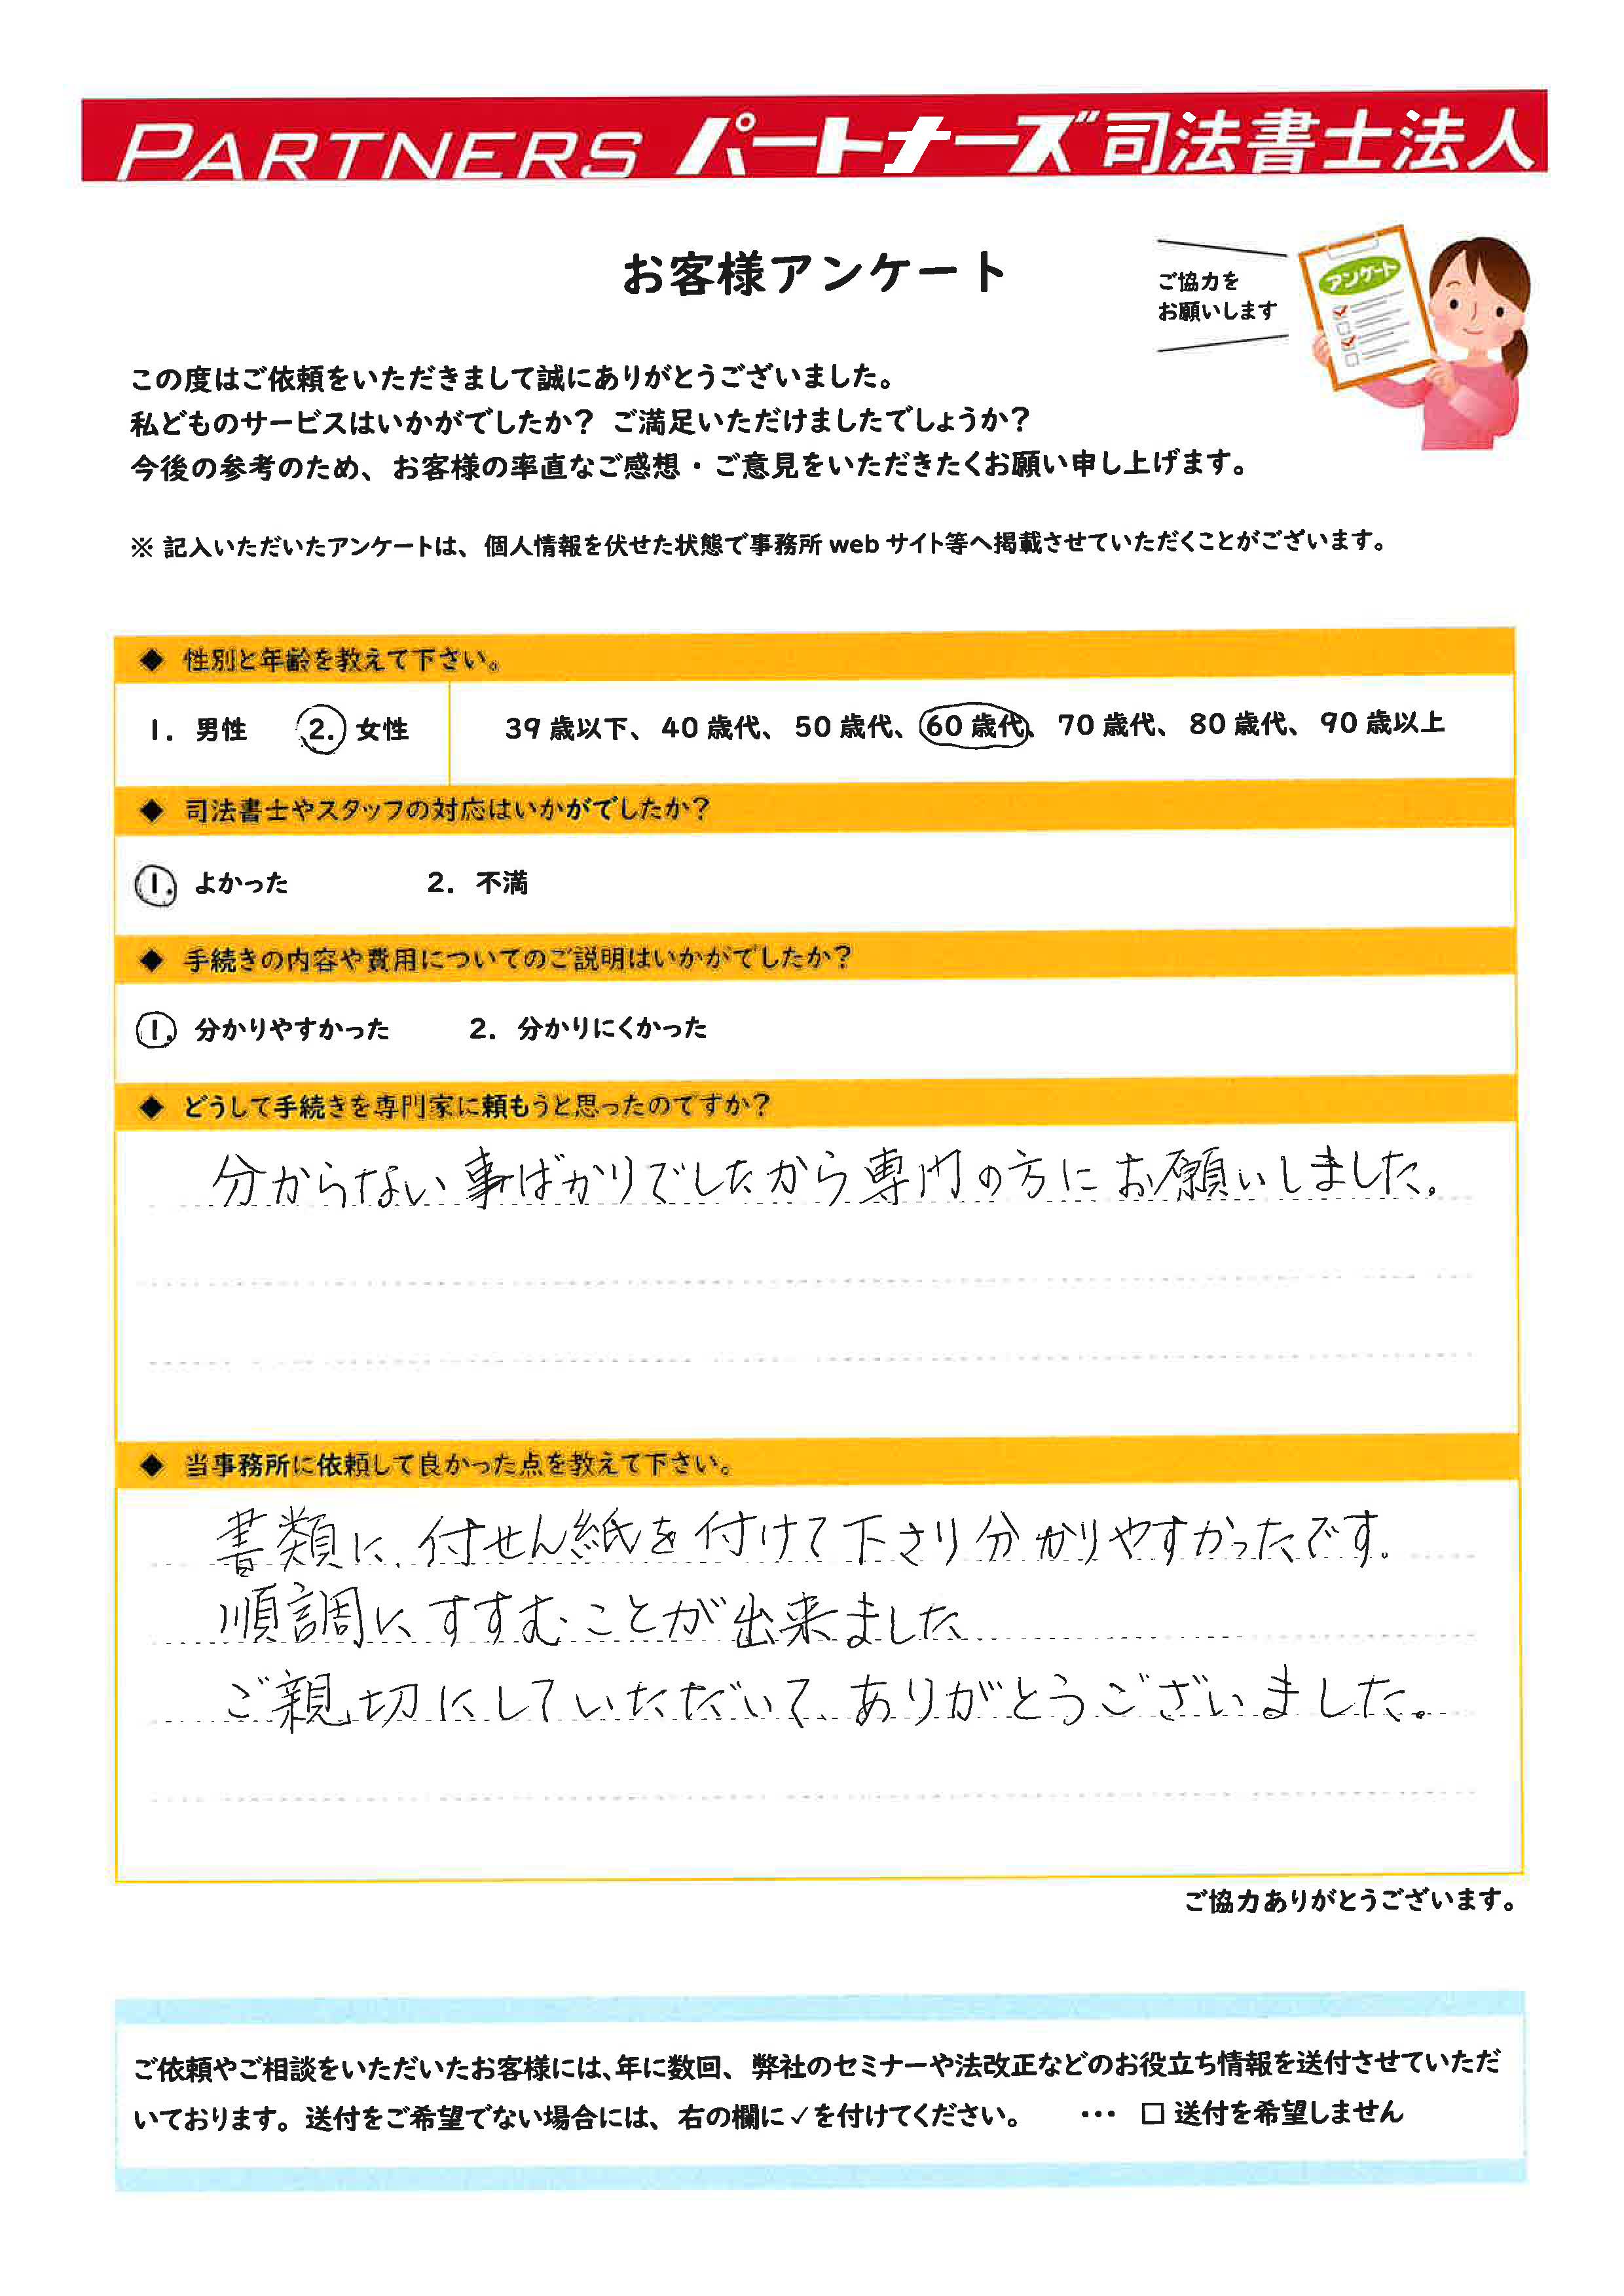 PARTNERS パートナーズ司法書士法人
お客様アンケート
ご協力を
お願いします
アンケート
この度はご依頼をいただきまして誠にありがとうございました。
私どものサービスはいかがでしたか？ ご満足いただけましたでしょうか？
今後の参考のため、お客様の率直なご感想・ご意見をいただきたくお願い申し上げます。
※ 記入いただいたアンケートは、個人情報を伏せた状態で事務所 web サイト等へ掲載させていただくことがございます。
◆ 性別と年齢を教えて下さい。
1. 男性 2. 女性 39 歳以下、40 歳代、50 歳代、60 歳代、70 歳代、80 歳代、90 歳以上
◆ 司法書士やスタッフの対応はいかがでしたか？
1. よかった 2. 不満
◆ 手続きの内容や費用についてのご説明はいかがでしたか？
1. 分かりやすかった 2. 分かりにくかった
◆ どうして手続きを専門家に頼もうと思ったのですか？
分からない事ばかりでしたから専門の方にお願いしました。
◆ 当事務所に依頼して良かった点を教えて下さい。
書類に、付せん紙を付けて下さり分かりやすかったです。
順調にすすむことが出来ました
ご親切にしていただいて、ありがとうございました。
ご協力ありがとうございます。
ご依頼やご相談をいただいたお客様には、年に数回、弊社のセミナーや法改正などのお役立ち情報を送付させていただ
いております。送付をご希望でない場合には、右の欄に✓を付けてください。 … □ 送付を希望しません